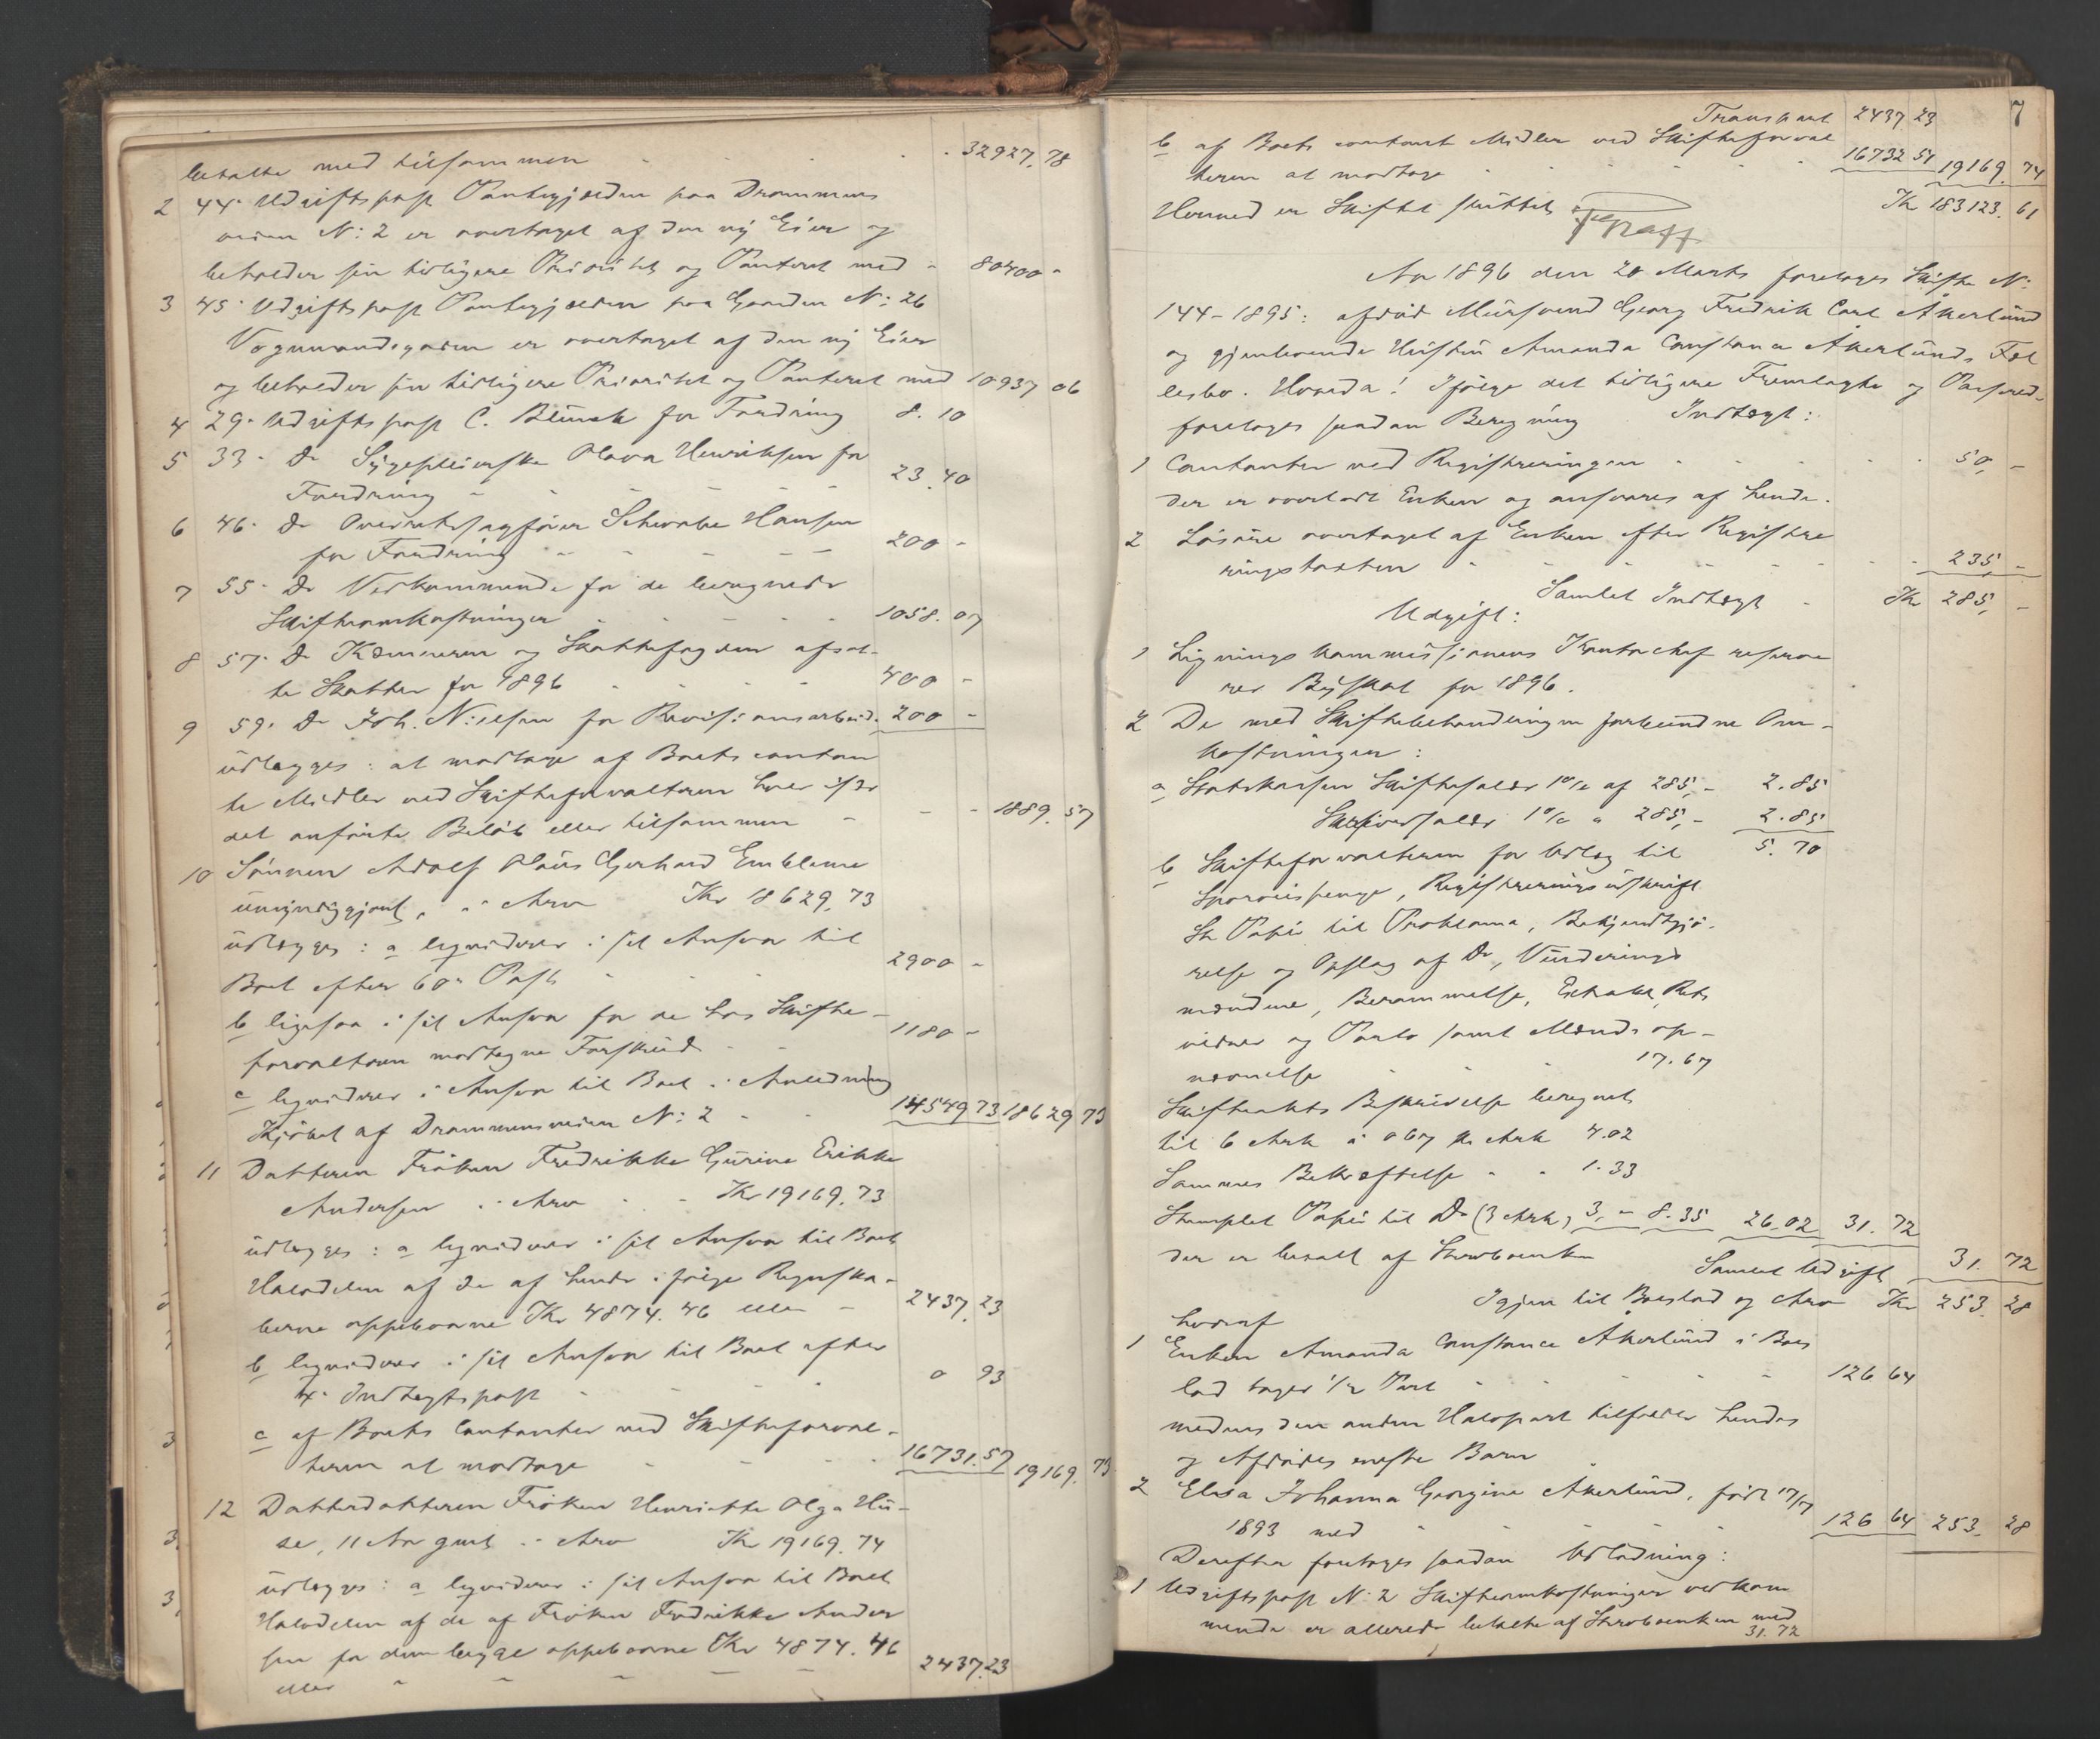 betalte med tilsammen - - - 32927.78
2 44. Udgiftspost Pantegjælden paa Drammens
veien N: 2 er overtaget af den ny Eier og
beholder sin tidligere Prioritet og Panteret med - 80400 -
3 45. Udgiftspost Pantegjælden paa Gaarden N: 26
Vognmandsgaden er overtaget af den ny Eier
og beholder sin tidligere Prioritet og Panteret med 10937 06
4 29. Udgiftspost C. Blunck for Fordring 8. 10
5 33. Do Sygepleierske Olava Henriksen for
Fordring - - - 23.40
6 46. Do Overretssagfører Schwabe Hansen
for Fordring - - - 200 -
7 55. Do Vedkommende for de beregnede
Skifteomkostninger - - - 1058.07
8 57. Do Kæmneren og Skattefogden afsat-
te Skatter for 1896 - - - 400 -
9 59. Do Joh. Nielsen for Revisionsarbeide 200 -
udlægges: at modtage af Boets contan
te Midler ved Skifteforvalteren hver især
det anførte Beløb eller tilsammen - - - 1889.57
10 Sønnen Adolf Olaus Gerhard Embleme
umyndiggjort, i Arv Kr 18629.73
udlægges: a liqviderer i sit Ansvar til
Boet efter 60de Post - 2900 -
b ligesaa i sit Ansvar for de hos Skifte-
forvalteren modtagne Forskud - - 1180 -
c liqviderer i Ansvar til Boet i Anledning
Kjøbet af Drammensveien N: 2 - - 14549 73 18629 73
11 Datteren Frøken Fredrikke Gurine Erikke
Andersen i Arv - - Kr 19169.73
udlægges: a liqviderer i sit Ansvar til Boet
Halvdelen af de af hende ifølge Regnska-
berne oppebaarne Kr 4874.46 eller - 2437.23
b liqviderer i sit Ansvar til Boet efter
4. Indtægtspost - - - 0 93
c af Boets Contanter ved Skifteforval-
teren at modtage - - - 16731.57 19169.73
12 Datterdatteren Frøken Henriette Olga Hu-
se, 11 Aar gml. i Arv Kr 19169.74
udlægges: a liqviderer i sit Ansvar til Boet
Halvdelen af de af Frøken Fredrikke Ander
sen for dem begge oppebaarne Kr 4874.46
eller - - - 2437.23
7
Transport 2437 23
b af Boets contante Midler ved Skifteforval
teren at modtage - - - 16732 51 19169.74
Hermed er Skiftet sluttet. Kr 183123.61
Aar 1896 den 20 Marts foretoges Skifte N:
144-1895: afdød Mursvend Georg Fredrik Carl Åkerlund
og gjenlevende Hustru Amanda Constance Åkerlunds Fæl
lesbo. Hvorda! Ifølge det tidligere Fremlagte og Passerede
foretoges saadan Beregning Indtægt:
1 Contanter ved Registreringen - - - 50, -
der er overladt Enken og ansvares af hende.
2 Løsøre overtaget af Enken efter Registre
ringstaxten - - - 235, -
Samlet Indtægt - Kr 285, -
Udgift:
1 Ligningskommissionens Kontorchef reserve
rer Byskat for 1896.
2 De med Skiftebehandlingen forbundne Om-
kostninger:
a Statskassen Skiftesalær 1% af 285, - 2.85
Skriversalær 1% a 285, - 2.85
5.70
b Skifteforvalteren for Udlæg til
Sporveispenge, Registreringsudskrift
St. Papir til Proklama, Bekjendtgjø-
relse og Opslag af Do, Vurderings
mændene, Berammelse, Extrakt, Rets
vidner og Porto samt Mænds op-
nævnelse - - - 17.67
Skifteakts Beskrivelse beregnet
til 6 Ark à 0 67 pr Ark 4.02
Sammes Bekræftelse - - 1.33
Stemplet Papir til Do (3 Ark) 3, - 8.35 26.02 31.72
der er betalt af Stervboenken 31.72
Samlet Udgift
Igjen til Boeslod og Arv Kr 253.28
hvoraf
1 Enken Amanda Constance Åkerlund i Boes
lod tager 1/2 Part - - - 126 64
medens den anden Halvpart tilfalder hendes
og Afdødes eneste Barn
2 Elsa Johanna Georgine Åkerlund, født 17/7
1893 med - - - 126 64 253.28
Derefter foretoges saadan Udlodning:
1 Udgiftspost N: 2 Skifteomkostninger vedkom
mende er allerede betalte af Stervboenken med
31.72